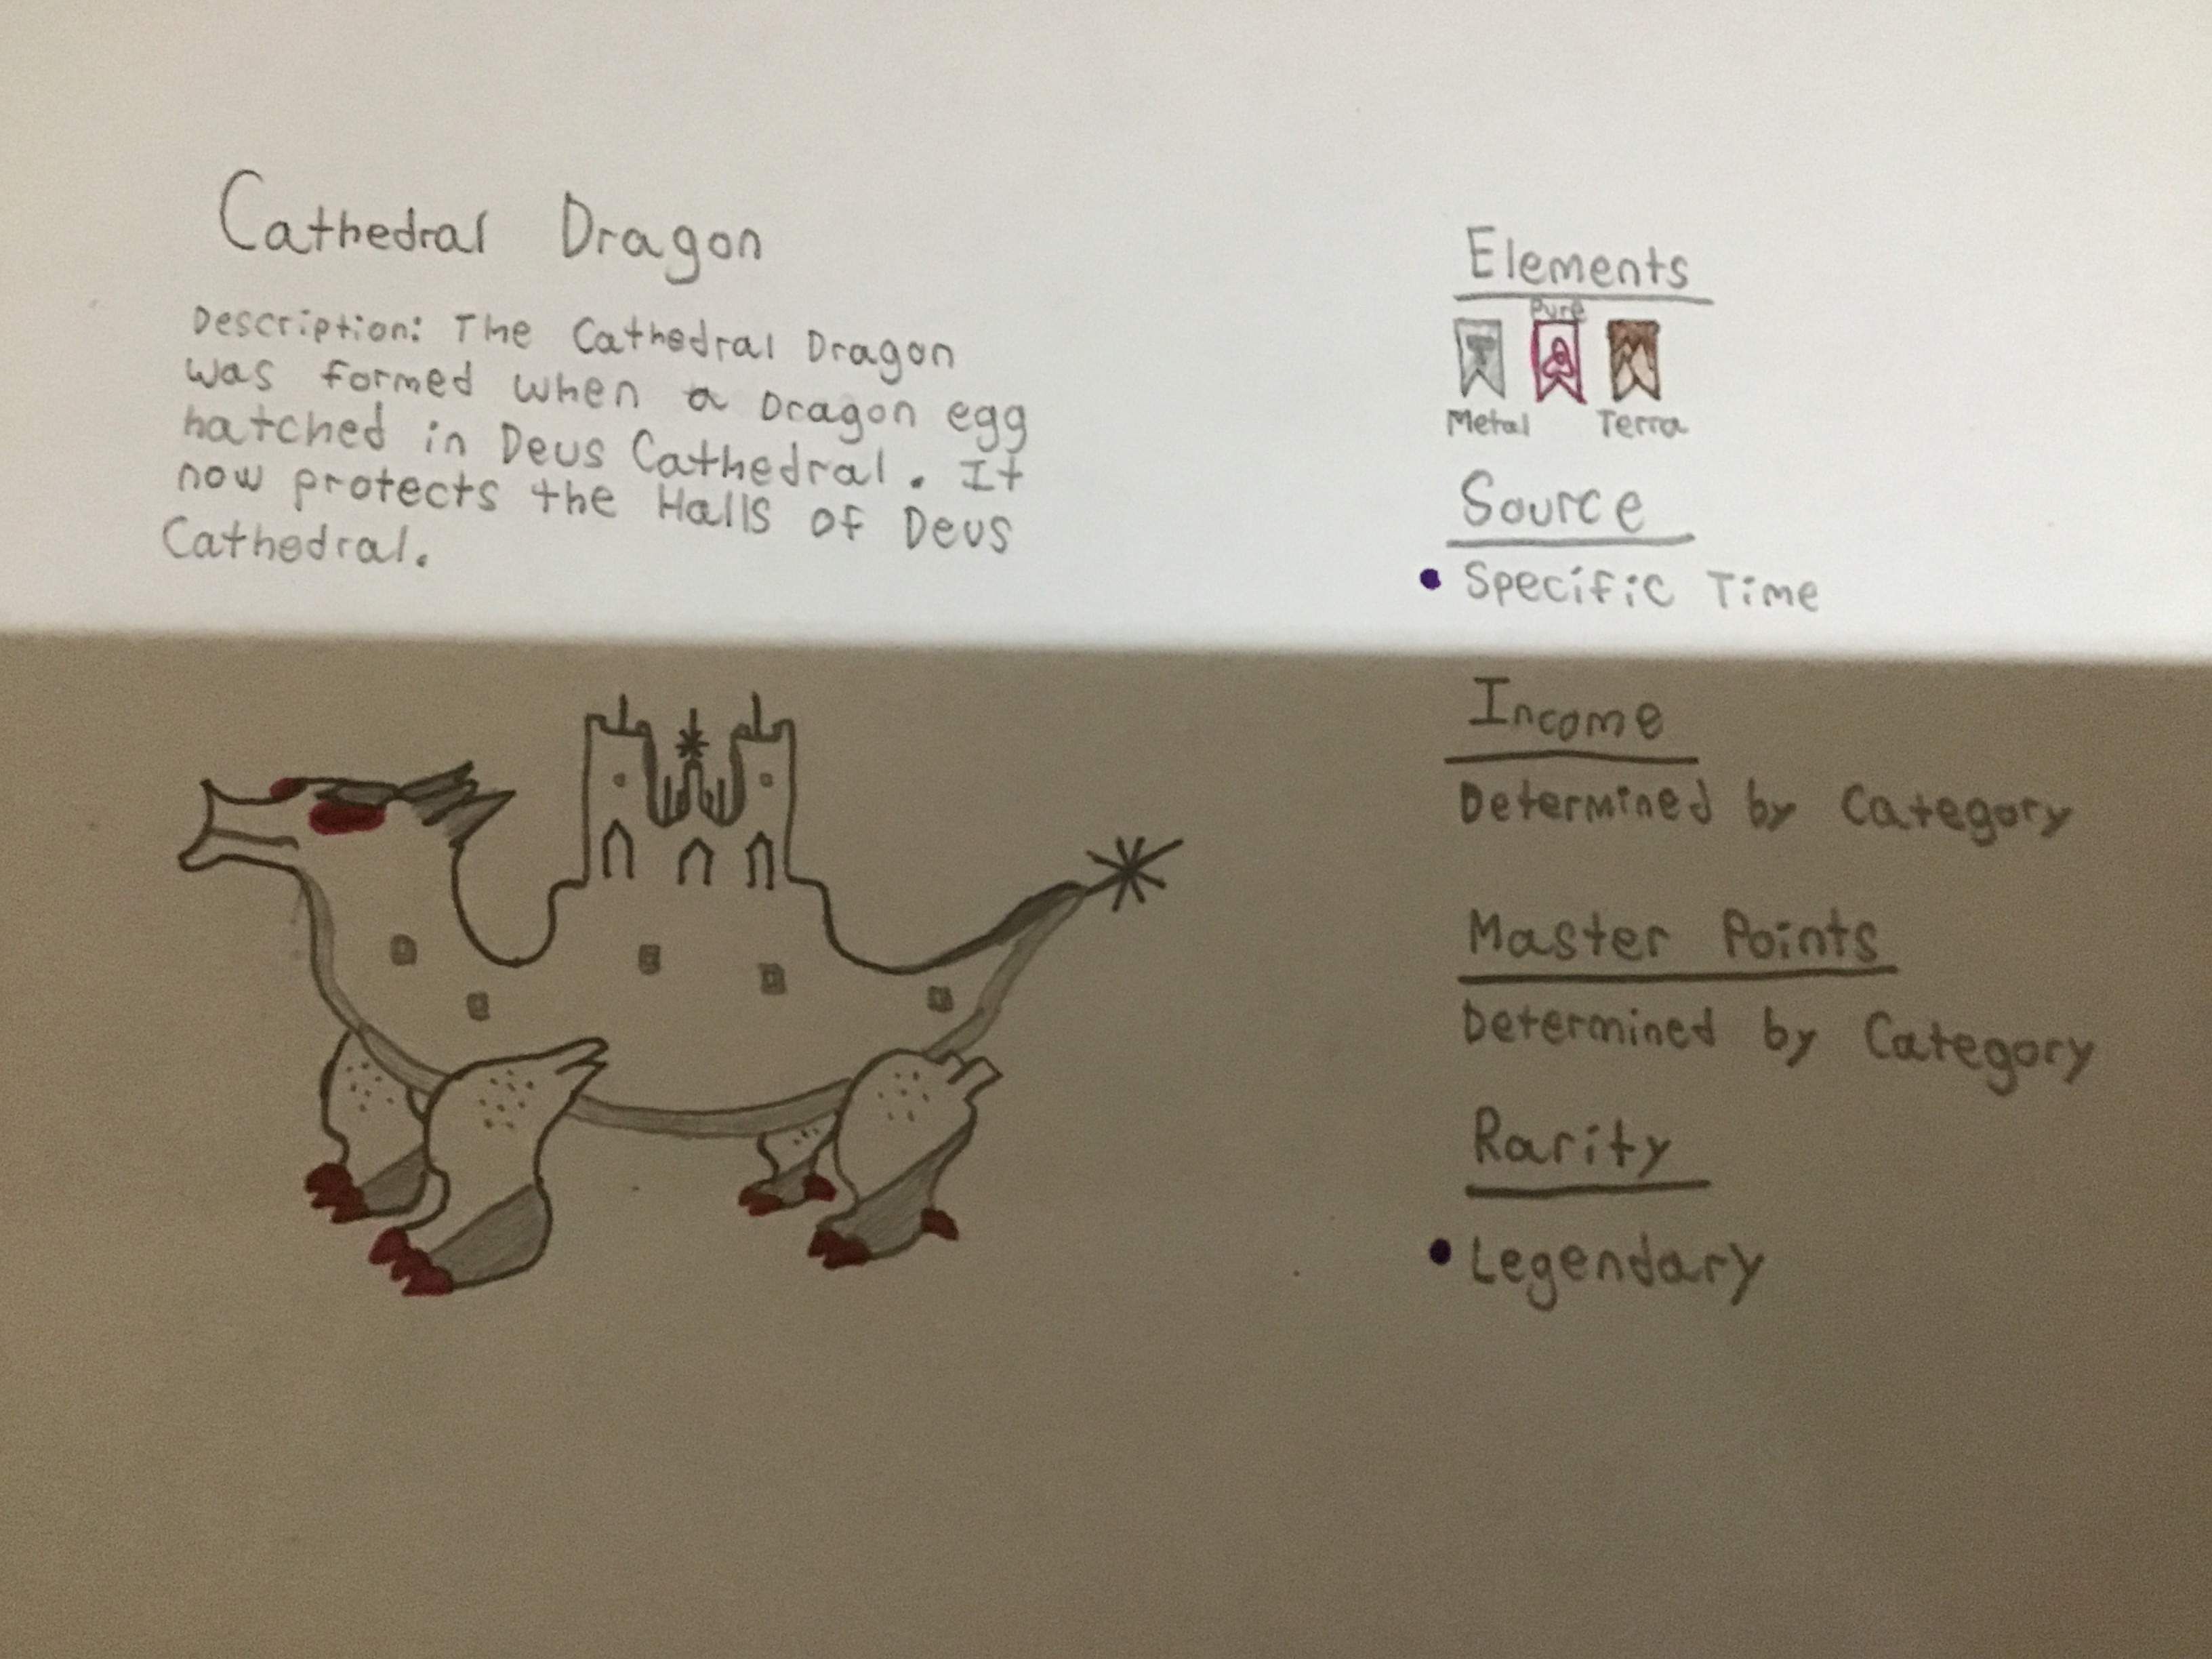 Cathedral Dragon
Description: The Cathedral Dragon
was formed when a Dragon egg
hatched in Deus Cathedral. It
now protects the Halls of Deus
Cathedral.
Elements
Pure
Metal Terra
Source
• Specific Time
Income
Determined by Category
Master Points
Determined by Category
Rarity
• Legendary